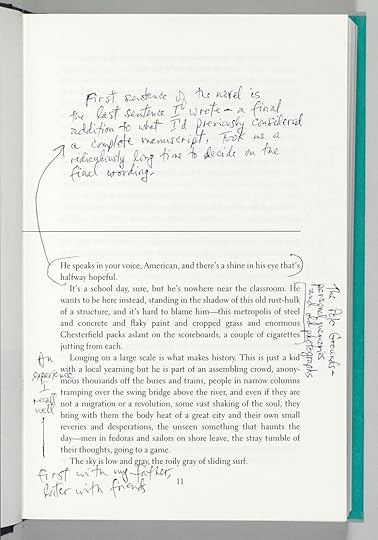 First sentence of the novel is
the last sentence I wrote — a final
addition to what I'd previously considered
a complete manuscript. Took me a
ridiculously long time to decide on the
final wording.
He speaks in your voice, American, and there's a shine in his eye that's
halfway hopeful.
It's a school day, sure, but he's nowhere near the classroom. He
wants to be here instead, standing in the shadow of this old rust-hulk
of a structure, and it's hard to blame him—this metropolis of steel
and concrete and flaky paint and cropped grass and enormous
Chesterfield packs aslant on the scoreboards, a couple of cigarettes
jutting from each.
Longing on a large scale is what makes history. This is just a kid
with a local yearning but he is part of an assembling crowd, anony-
mous thousands off the buses and trains, people in narrow columns
tramping over the swing bridge above the river, and even if they are
not a migration or a revolution, some vast shaking of the soul, they
bring with them the body heat of a great city and their own small
reveries and desperations, the unseen something that haunts the
day—men in fedoras and sailors on shore leave, the stray tumble of
their thoughts, going to a game.
The sky is low and gray, the roily gray of sliding surf.
The Polo Grounds —
personal memories
and old photographs
An
experience
I
recall
well
first with my father,
later with friends
11